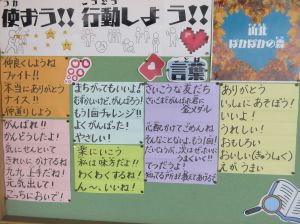 つか
こうどう
使おう!! 行動しよう!!
ぽかぽかの言葉
仲良くしようね
ファイト!!
本当にありがとう
ナイス!!
仲直りしよう
がんばれ!!
かんどうしたよ
気にせんといて
きれいに かけてるね
九九上手だね
元気出して!
こっちにおいで!!
まちがってもいいよ。
もう1回チャレンジ!!
よくがんばった!
やさしい!
楽にいこう
私は味方だよ!!
わくわくするね!
ん～、いいね!
さいこうな友だち
金メダル
心配かけてごめんね
そんなことないよ、もう1回!
うまくいく!!
てつだうよ!
ありがとう
いっしょに あそぼう!
いいよ!
うれしい!
おもしろい
おいしい(きゅうしょく)
えがうまい